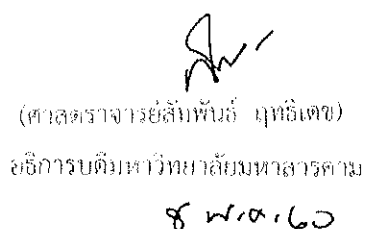 (ศาสตราจารย์สัมพันธ์ ฤทธิเดช)
อธิการบดีมหาวิทยาลัยมหาสารคาม
๘ พ.ค. ๖๐